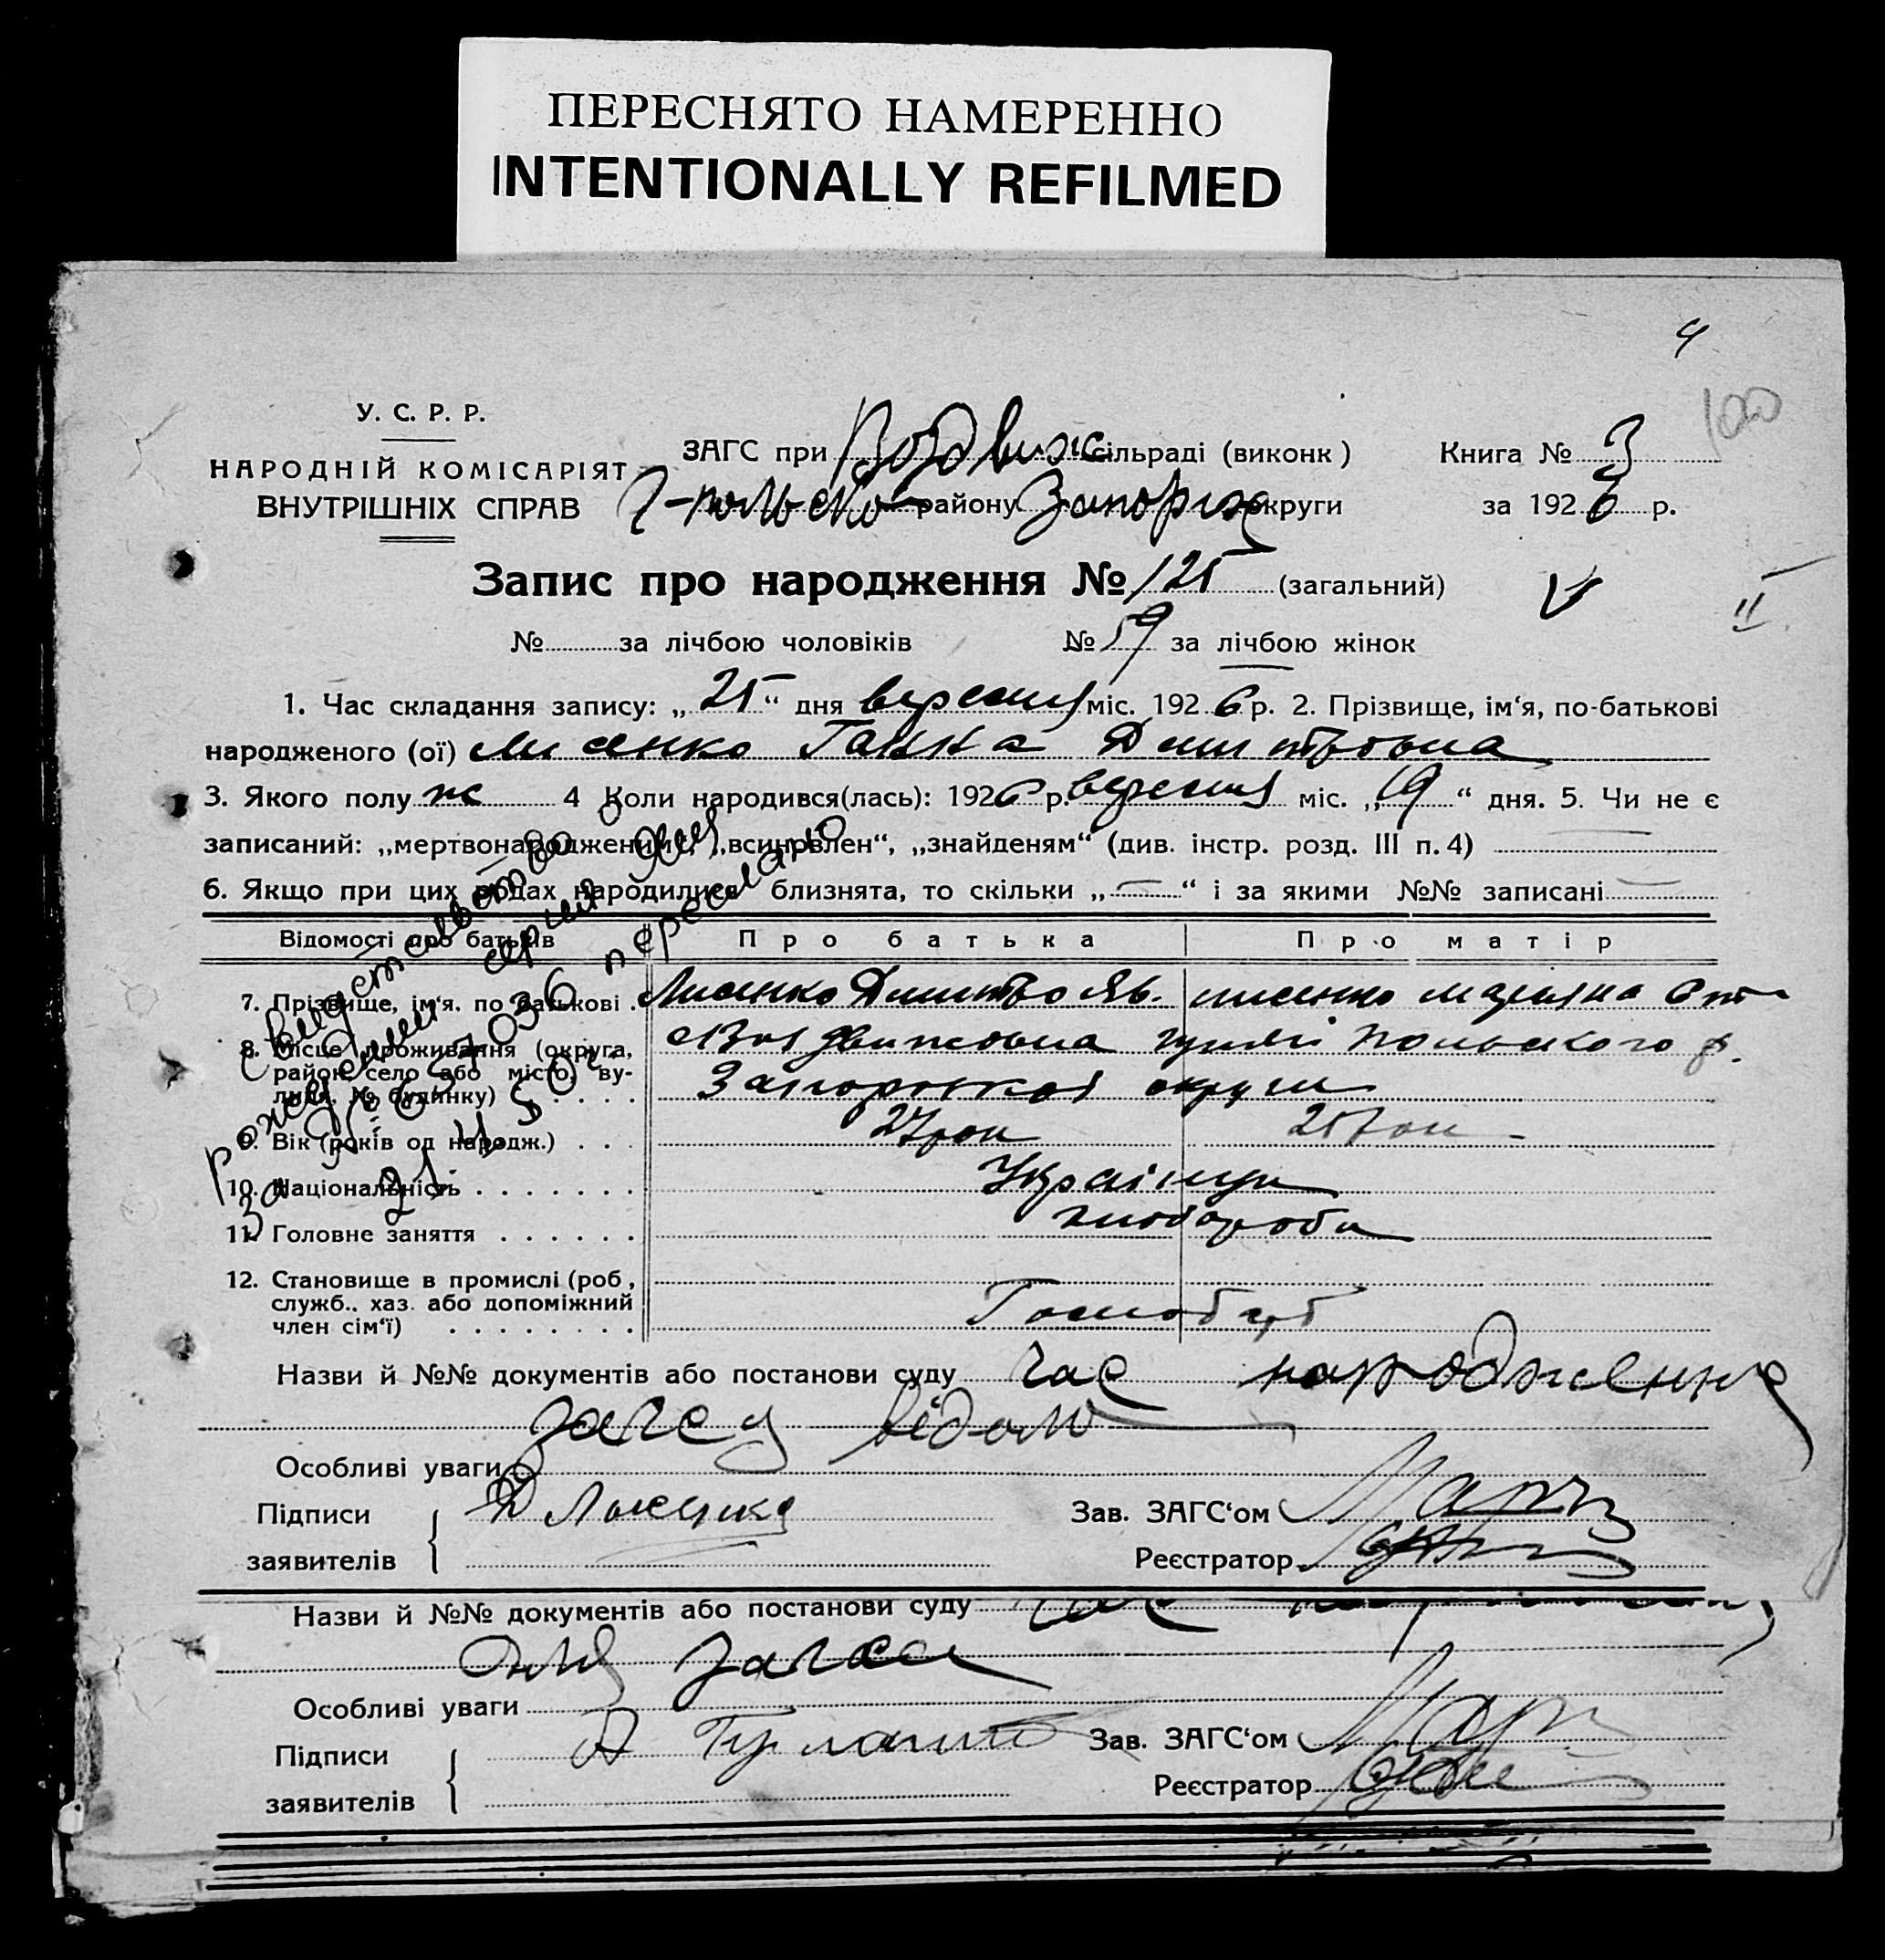 ПЕРЕСНЯТО НАМЕРЕННО
INTENTIONALLY REFILMED
4
100
У. С. Р. Р.
НАРОДНІЙ КОМІСАРІЯТ
ВНУТРІШНІХ СПРАВ
ЗАГС при Воздвиж сільраді (виконк)
Книга № 3
Г-польсько району Запоріж округи
за 1926 р.
Запис про народження № 125 (загальний)
II
№ за лічбою чоловіків № 59 за лічбою жінок
1. Час складання запису: „25“ дня вересня міс. 1926 р. 2. Прізвище, ім‘я, по-батькові
народженого (ої) Лисенко Ганна Дмитровна
3. Якого полу ж 4 Коли народився(лась): 1926 р. вересня міс. „19“ дня. 5. Чи не є
записаний: „мертвонародженим“, „всиновлен“, „знайденям“ (див. інстр. розд. III п. 4)
6. Якщо при цих родах народилися близнята, то скільки „—“ і за якими №№ записані —
Свидетельство о
рождении серия
№ 637036 переслано
за 21
Відомості про батьків Про батька Про матір
7. Прізвище, ім‘я, по батькові . Лисенко Дмитро Як. лисенко
8. Місце проживання (округа, район, село або місто, ву- лиця, № будинку) . . . .
с Воздвижовка гуляй Польского р.
Запорожской округи
9. Вік (років од народж.) . . . 27 рок 25 рок
10. Національність . . . . . . . Українци
11. Головне заняття . . . . . . хлібороби
12. Становище в промислі (роб, служб., хаз. або допоміжний член сім‘ї) . . . . . . . .
Назви й №№ документів або постанови суду час народження
загсу відом
Особливі уваги
Підписи
заявителів
Д Лисенко
Зав. ЗАГС‘ом
Реєстратор
Назви й №№ документів або постанови суду
для загса
Особливі уваги
Підписи
заявителів
Зав. ЗАГС‘ом
Реєстратор